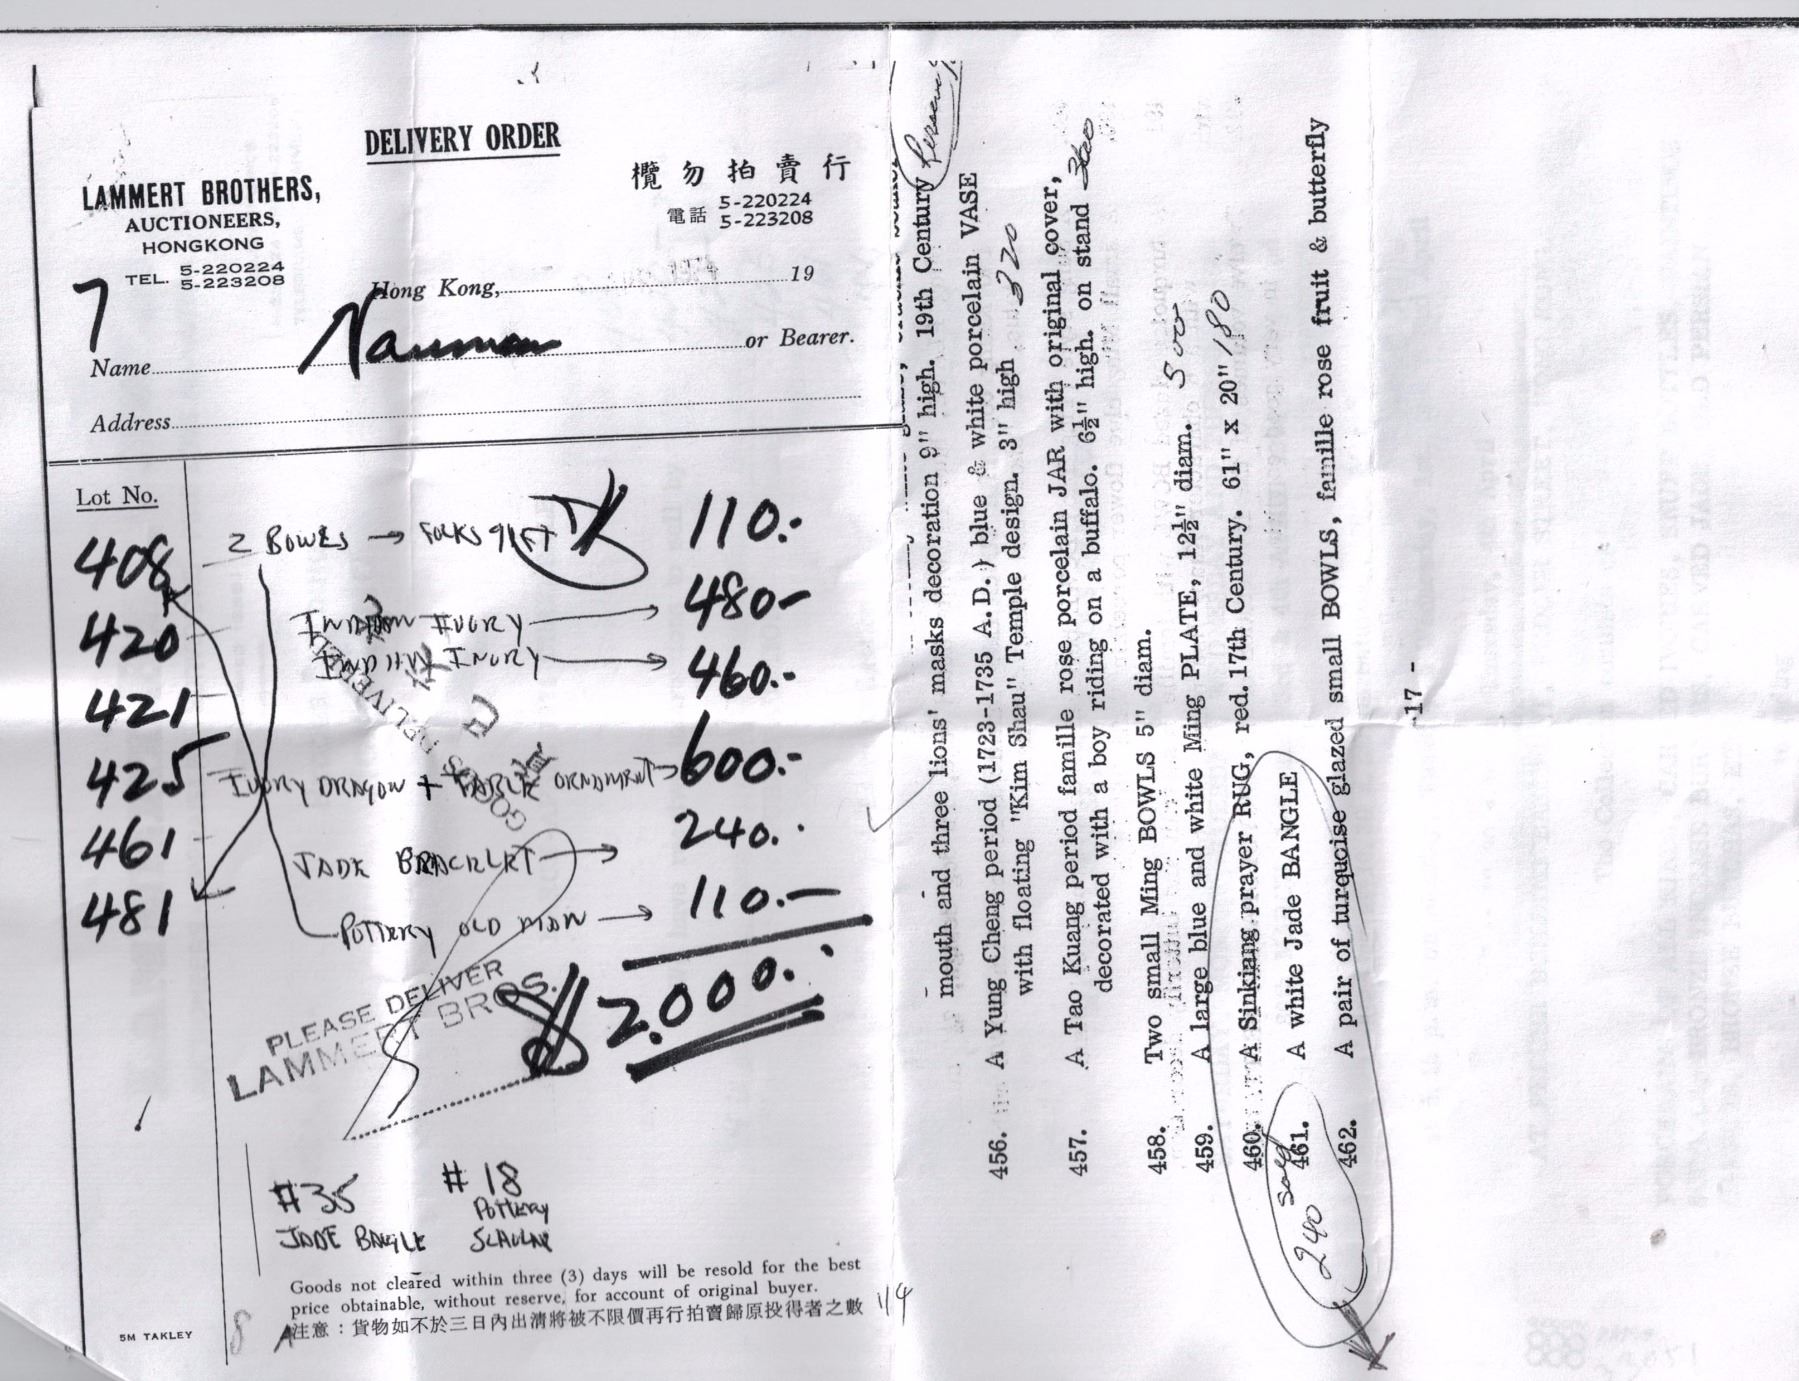 DELIVERY ORDER
LAMMERT BROTHERS,
AUCTIONEERS,
HONGKONG
TEL. 5-220224
5-223208
欖勿拍賣行
電話 5-220224
5-223208
7
Hong Kong, 19
Name Nauman or Bearer.
Address
Lot No.
408 2 BOWLS → FOLKS GIFT 110.-
420 INDIAN IVORY → 480-
421 INDIAN IVORY → 460.-
425 IVORY DRAGON + TABLE ORNAMENT → 600.-
461 JADE BRACELET → 240.-
481 POTTERY OLD MAN → 110.-
$2,000.-
GOODS DELIVERED
PLEASE DELIVER
LAMMERT BROS.
#35
JADE BANGLE
#18
POTTERY
Goods not cleared within three (3) days will be resold for the best
price obtainable, without reserve, for account of original buyer.
注意：貨物如不於三日內出清將被不限價再行拍賣歸原投得者之數
5M TAKLEY
114
mouth and three lions' masks decoration 9" high. 19th Century
456. A Yung Cheng period (1723-1735 A.D.) blue & white porcelain VASE
with floating "Kim Shau" Temple design. 3" high 320
457. A Tao Kuang period famille rose porcelain JAR with original cover,
decorated with a boy riding on a buffalo. 6½" high. on stand
458. Two small Ming BOWLS 5" diam.
459. A large blue and white Ming PLATE, 12½" diam. 500
460. A Sinkiang prayer RUG, red. 17th Century. 61" x 20" 180
461. A white Jade BANGLE
240 sold
462. A pair of turquoise glazed small BOWLS, famille rose fruit & butterfly
-17-